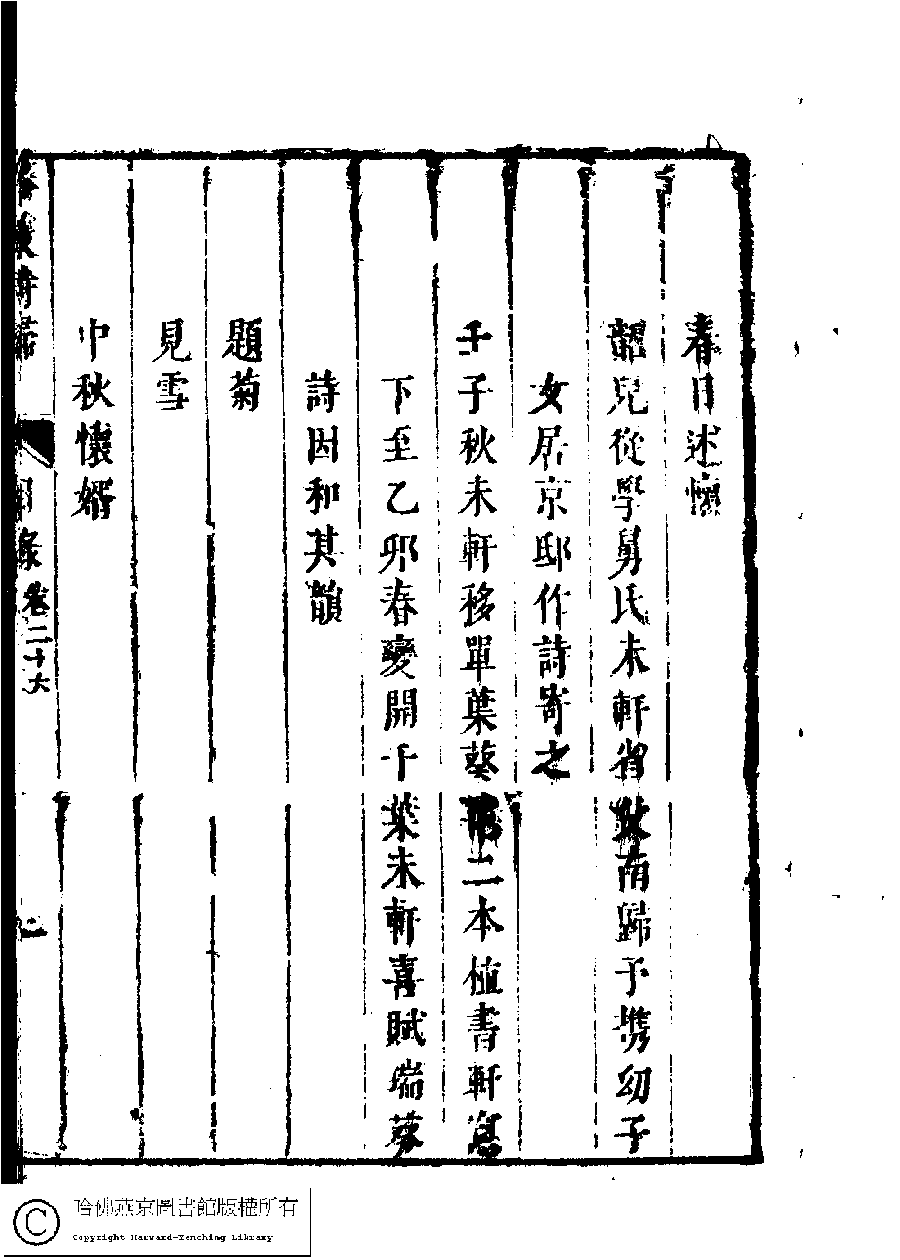 春日述懷
韶兒從學舅氏未軒省南歸予携幼子
女居京邸作詩寄之
壬子秋未軒移單葉葵二本植書軒窓
下至乙卯春變開千葉未軒喜賦瑞葵
詩因和其韻
題菊
見雪
中秋懷婿
目錄 卷二十六
二
哈佛燕京圖書館版權所有
Copyright Harvard-Yenching Library